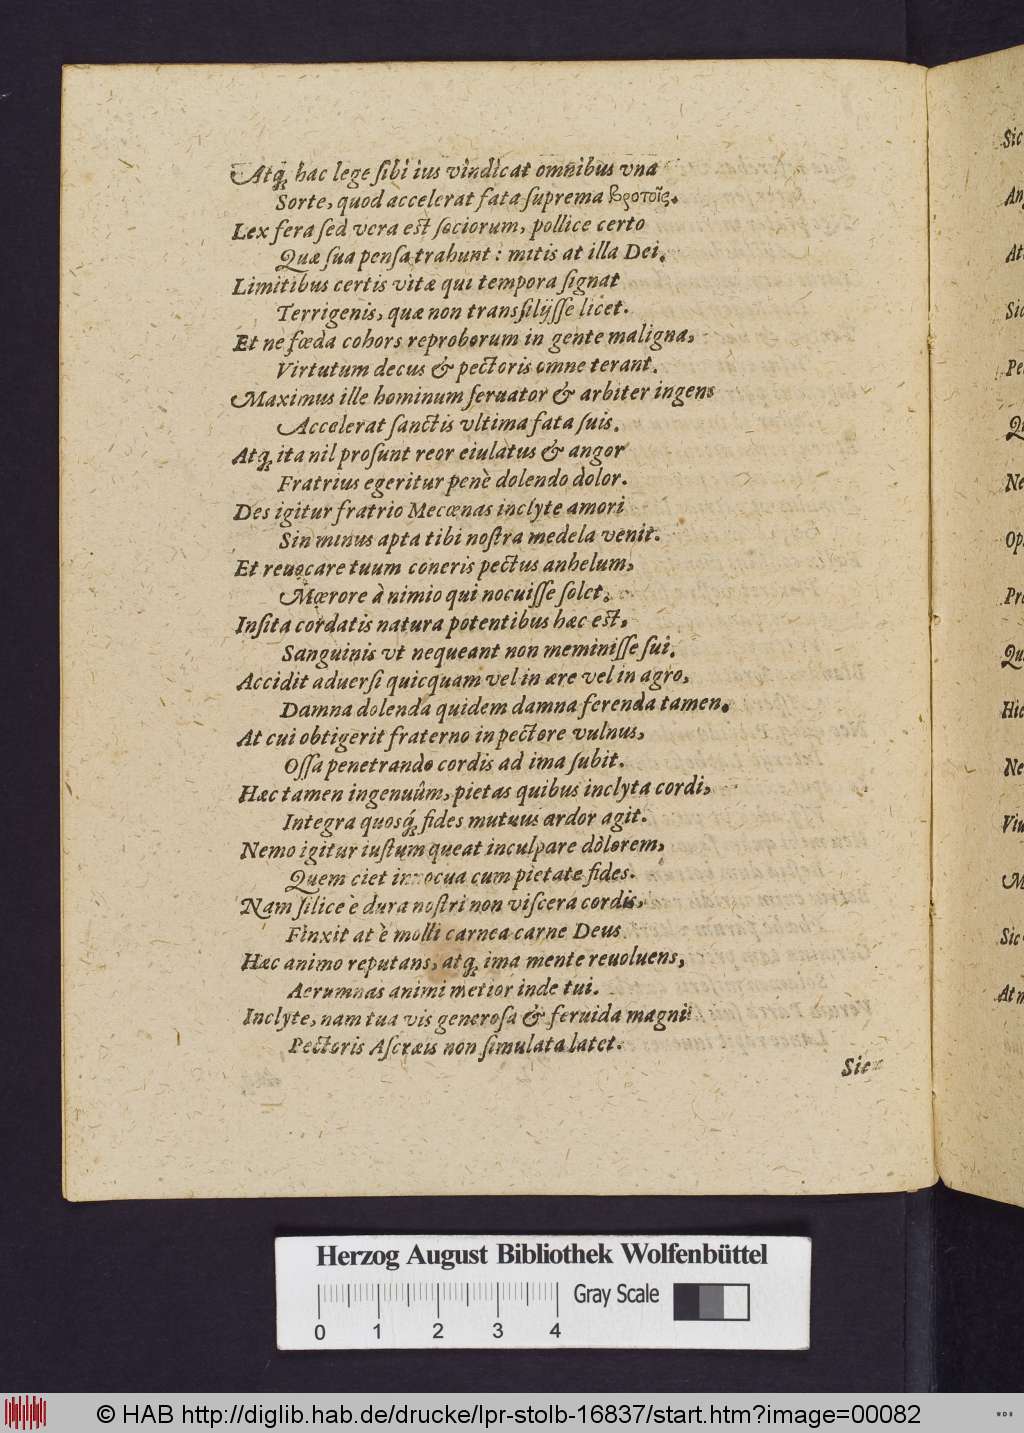 Atq́ꝫ hac lege ſibi ius vindicat omnibus vna
Sorte, quod accelerat fata ſuprema βροτοῖς.
Lex fera ſed vera eſt ſociorum, pollice certo
Quæ ſua penſa trahunt : mitis at illa Dei.
Limitibus certis vitæ qui tempora ſignat
Terrigenis, quæ non transſilijſſe licet.
Et ne fœda cohors reproborum in gente maligna,
Virtutum decus & pectoris omne terant.
Maximus ille hominum ſeruator & arbiter ingens
Accelerat ſanctis vltima fata ſuis.
Atqꝫ ita nil proſunt reor eiulatus & angor
Fratrius egeritur penè dolendo dolor.
Des igitur fratrio Mecœnas inclyte amori
Sin minus apta tibi noſtra medela venit.
Et reuocare tuum coneris pectus anhelum,
Mœrore à nimio qui nocuiſſe ſolet.
Inſita cordatis natura potentibus hæc eſt,
Sanguinis vt nequeant non meminiſſe ſui.
Accidit aduerſi quicquam vel in ære vel in agro,
Damna dolenda quidem damna ferenda tamen.
At cui obtigerit fraterno in pectore vulnus,
Oſſa penetrando cordis ad ima ſubit.
Hæc tamen ingenuûm, pietas quibus inclyta cordi,
Integra quosq́ꝫ fides mutuus ardor agit.
Nemo igitur iuſtum queat inculpare dolorem,
Quem ciet innocua cum pietate fides.
Nam ſilice è dura noſtri non viſcera cordis,
Finxit at è molli carnea carne Deus
Hæc animo reputans, atqꝫ ima mente reuoluens,
Aerumnas animi metior inde tui.
Inclyte, nam tua vis generoſa & feruida magni
Pectoris Aſcræis non ſimulata latet.
Sic
Sic
At
Sic
Pe
Ne
Op
Pro
Hic
Ne
Sic
At m
Herzog August Bibliothek Wolfenbüttel
Gray Scale
0 1 2 3 4
© HAB http://diglib.hab.de/drucke/lpr-stolb-16837/start.htm?image=00082